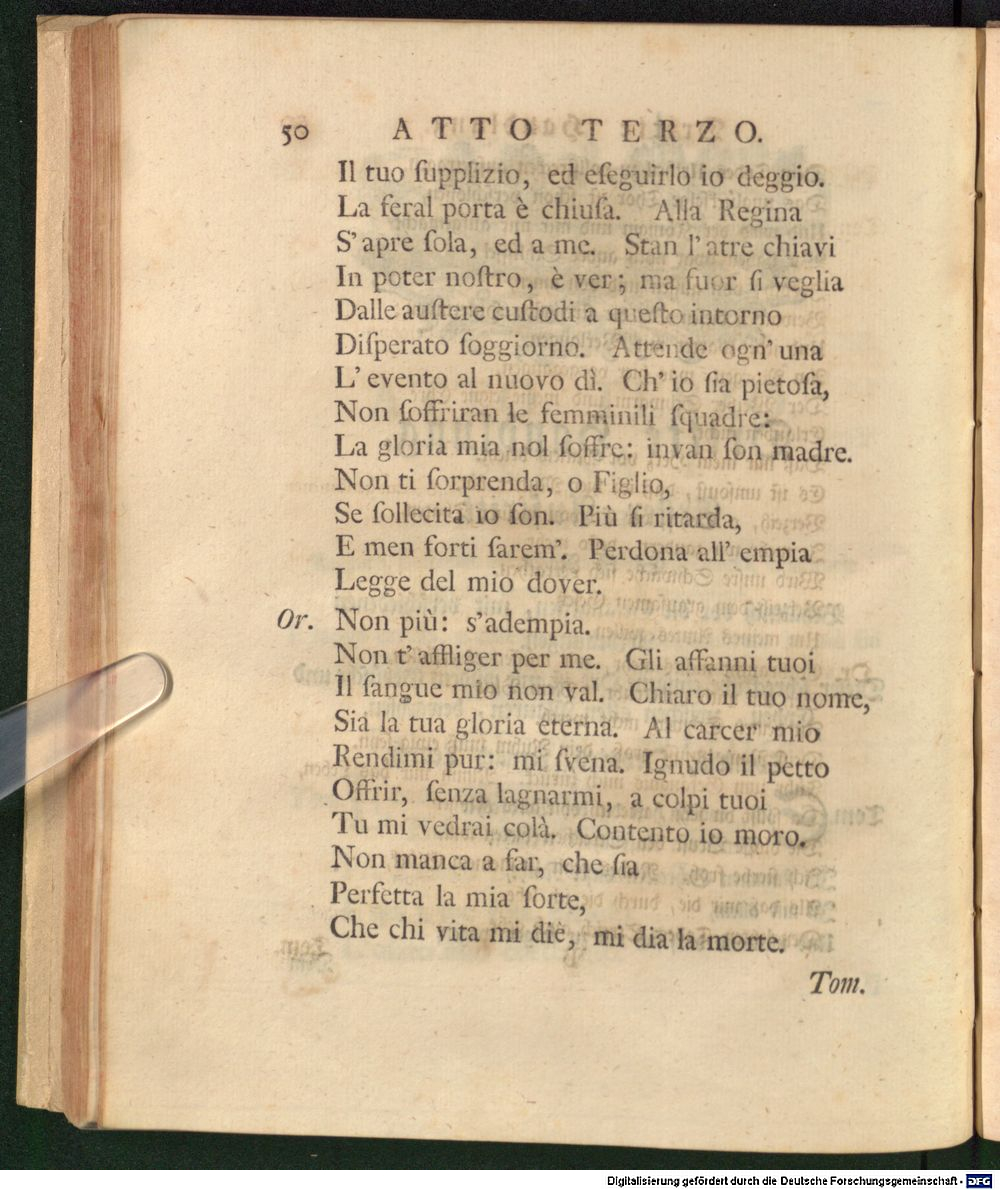 50 ATTO TERZO.
Il tuo ſupplizio, ed eſeguirlo io deggio.
La feral porta è chiuſa. Alla Regina
S'apre ſola, ed a me. Stan l'atre chiavi
In poter noſtro, è ver; ma fuor ſi veglia
Dalle auſtere cuſtodi a queſto intorno
Diſperato ſoggiorno. Attende ogn'una
L'evento al nuovo dì. Ch'io ſia pietoſa,
Non ſoffriran le femminili ſquadre:
La gloria mia nol ſoffre: invan ſon madre.
Non ti ſorprenda, o Figlio,
Se ſollecita io ſon. Più ſi ritarda,
E men forti ſarem'. Perdona all'empia
Legge del mio dover.
Or. Non più: s'adempia.
Non t'affliger per me. Gli affanni tuoi
Il ſangue mio non val. Chiaro il tuo nome,
Sia la tua gloria eterna. Al carcer mio
Rendimi pur: mi ſvena. Ignudo il petto
Offrir, ſenza lagnarmi, a colpi tuoi
Tu mi vedrai colà. Contento io moro.
Non manca a far, che ſia
Perfetta la mia ſorte,
Che chi vita mi diè, mi dia la morte.
Tom.
Digitalisierung gefördert durch die Deutsche Forschungsgemeinschaft - DFG